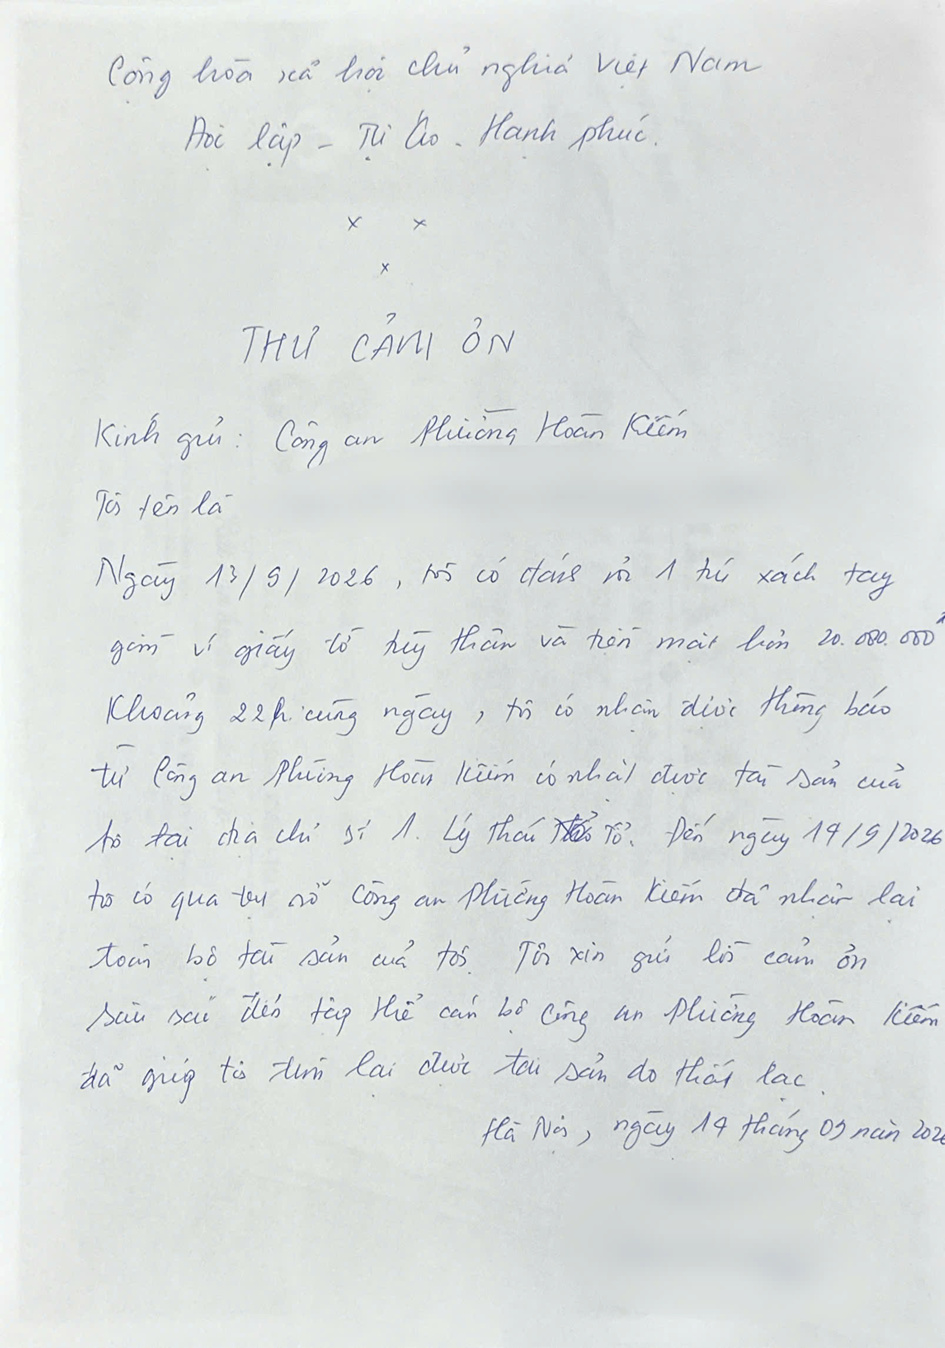 Cộng hòa xã hội chủ nghĩa Việt Nam
Độc lập - Tự do - Hạnh phúc.
x x
x
THƯ CẢM ƠN
Kính gửi: Công an Phường Hoàn Kiếm
Tôi tên là
Ngày 13/9/2026, tôi có đánh rơi 1 túi xách tay
gồm ví giấy tờ tùy thân và tiền mặt hơn 20.000.000đ
Khoảng 22h cùng ngày, tôi có nhận được thông báo
từ Công an Phường Hoàn Kiếm có nhặt được tài sản của
tôi tại địa chỉ số 1. Lý Thái Tổ. Đến ngày 14/9/2026
tôi có qua trụ sở Công an Phường Hoàn Kiếm đã nhận lại
toàn bộ tài sản của tôi. Tôi xin gửi lời cảm ơn
sâu sắc đến tập thể cán bộ Công an Phường Hoàn Kiếm
đã giúp tôi tìm lại được tài sản do thất lạc.
Hà Nội, ngày 14 tháng 09 năm 2026